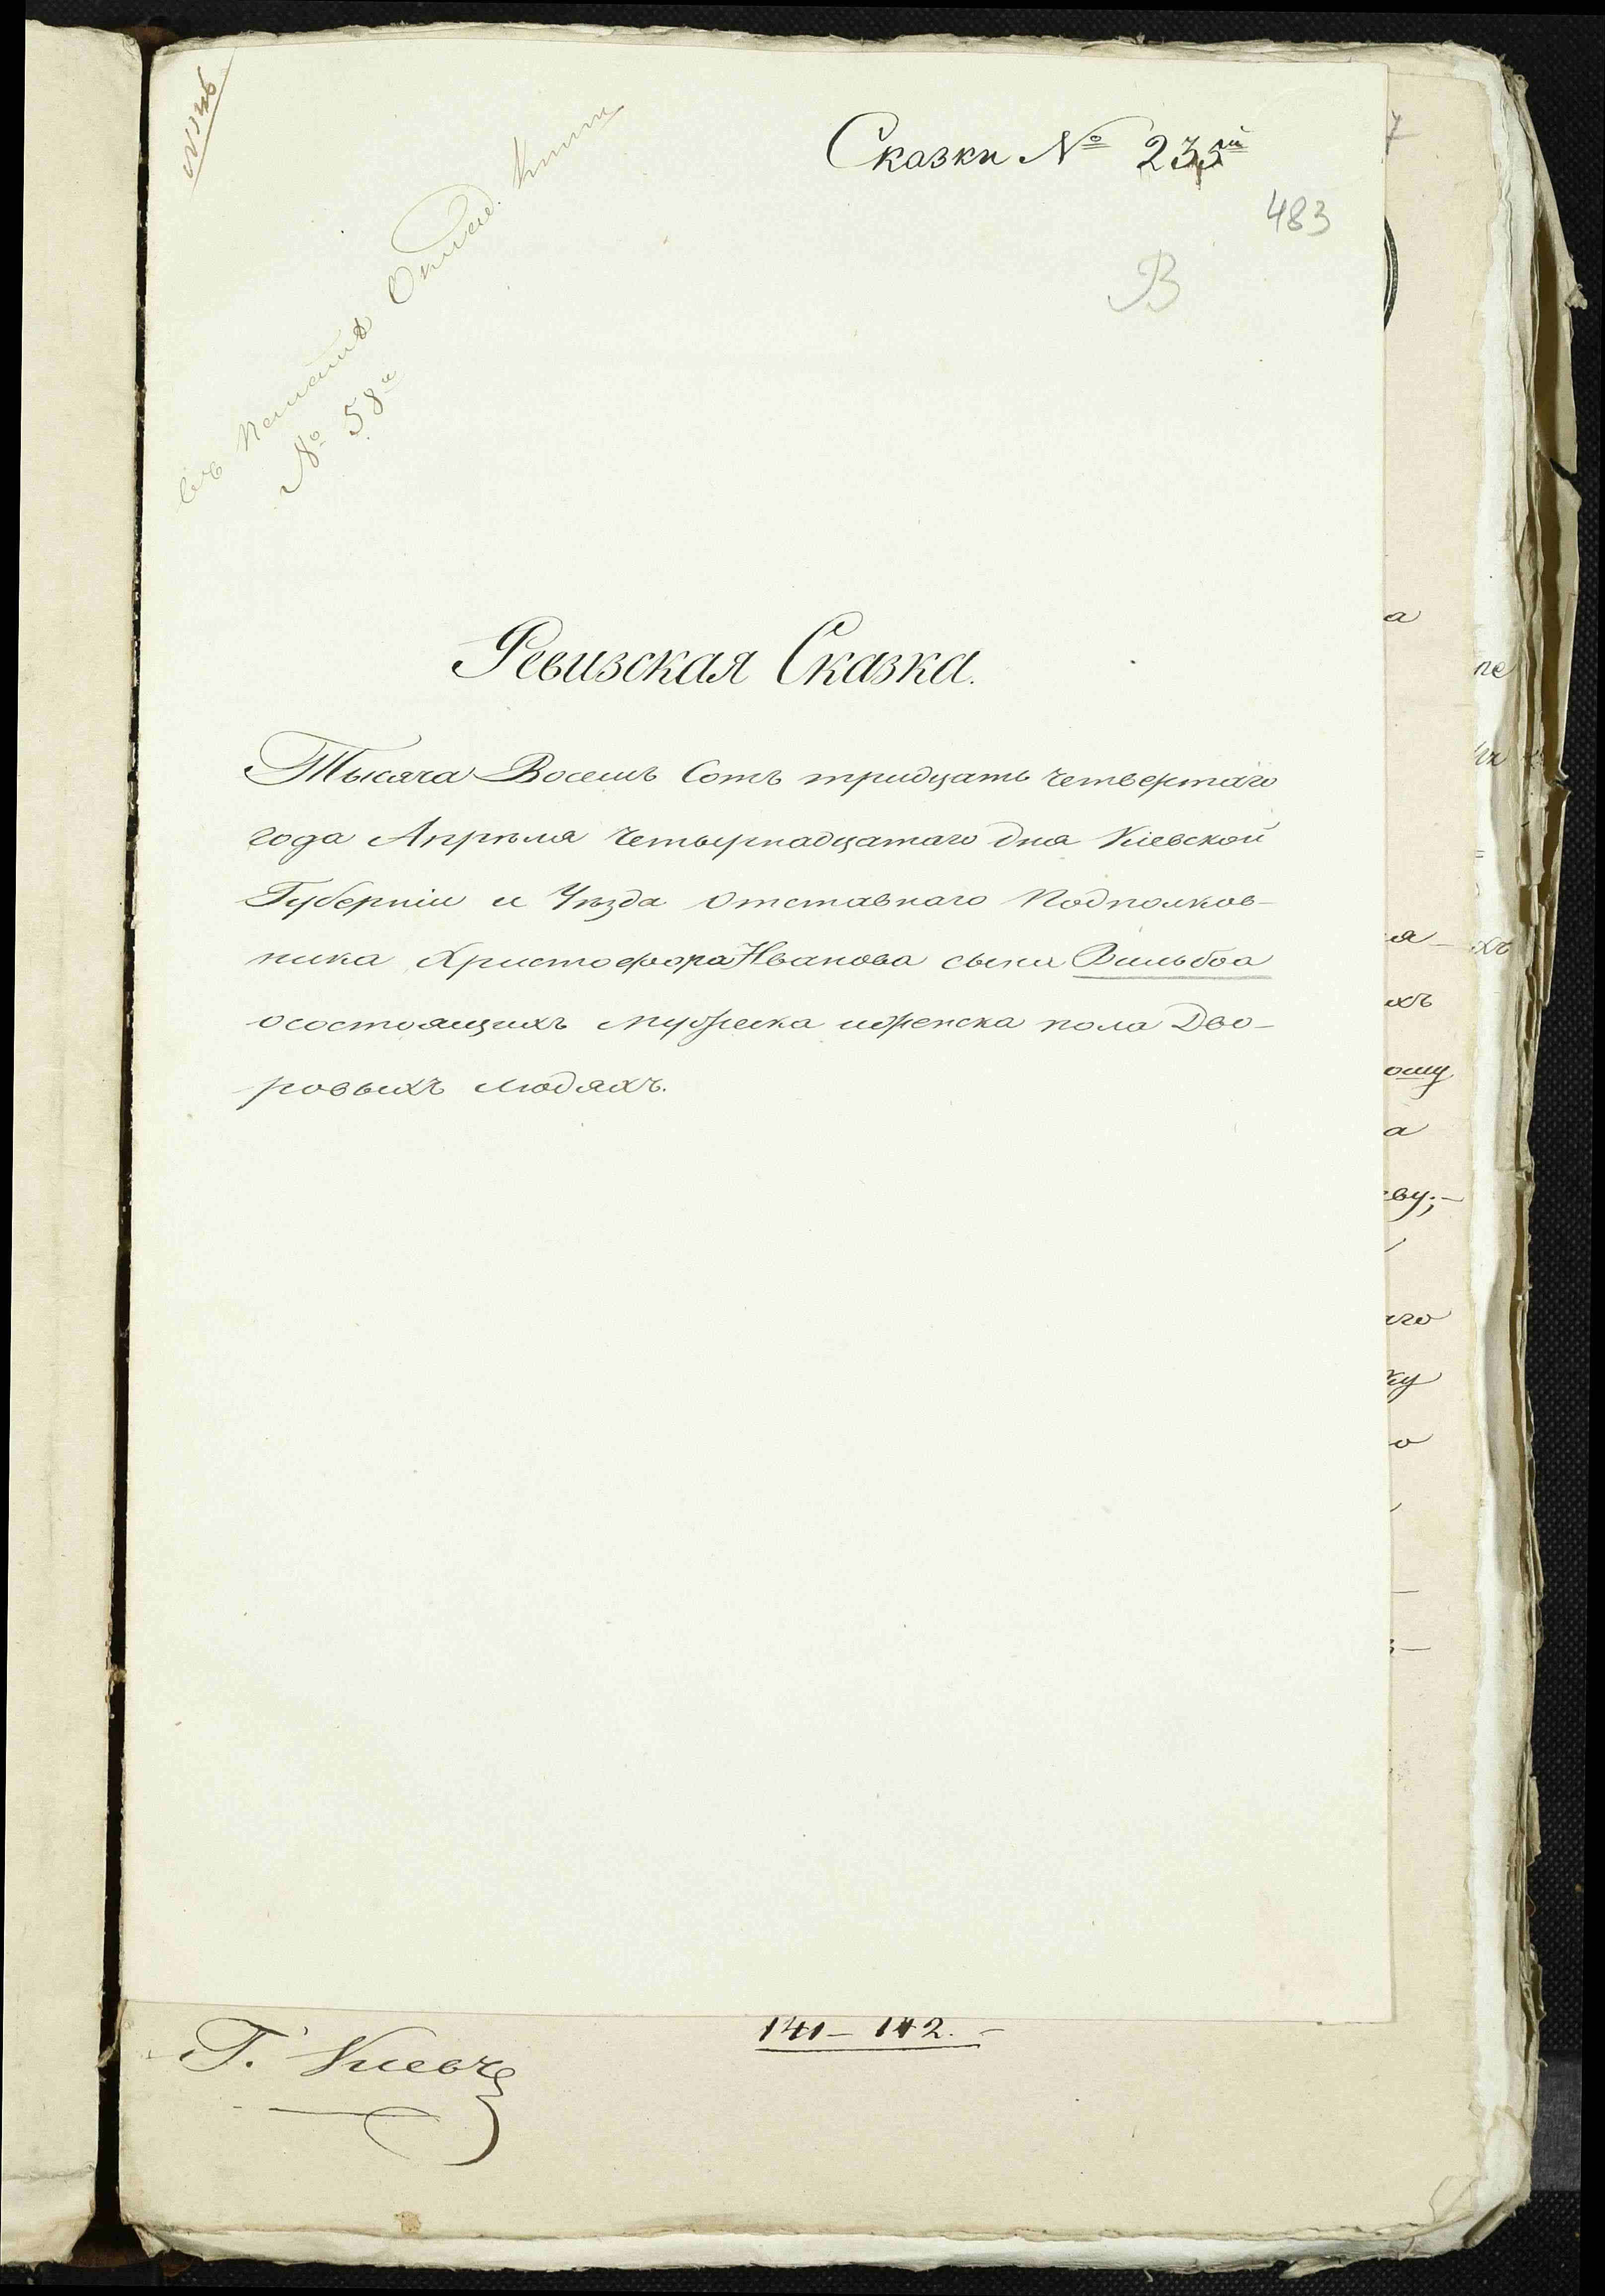 Сказки № 235й
483
В
№ 58й
Ревизская Сказка.
Тысяча Восемь Сотъ тридцать четвертаго
года Апрѣля четырнадцатаго дня Кіевской
Губерніи и Уѣзда Отставнаго Подполков-
ника Христофора Иванова сына Вильбоа
осостоящихъ мужеска иженска пола Дво-
ровыхъ людяхъ.
141 – 142. –
Г. Киевъ